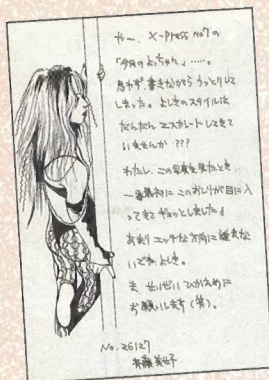 やー、X-Press No7の
「今月のよっちゃん」……。
思わず書きながらうっとりして
しまった。よしきのスタイルは
だんだん エスカレートしてきて
いませんか ???
わたし、この写真を見たとき
一番最初に このおしりが目に入
ってきてギョッとしました。
あまり エッチな方向に 進まな
いでね よしき。
ま、せいぜい ひかえめに
お願いします (笑)。
No. 26127
斉藤